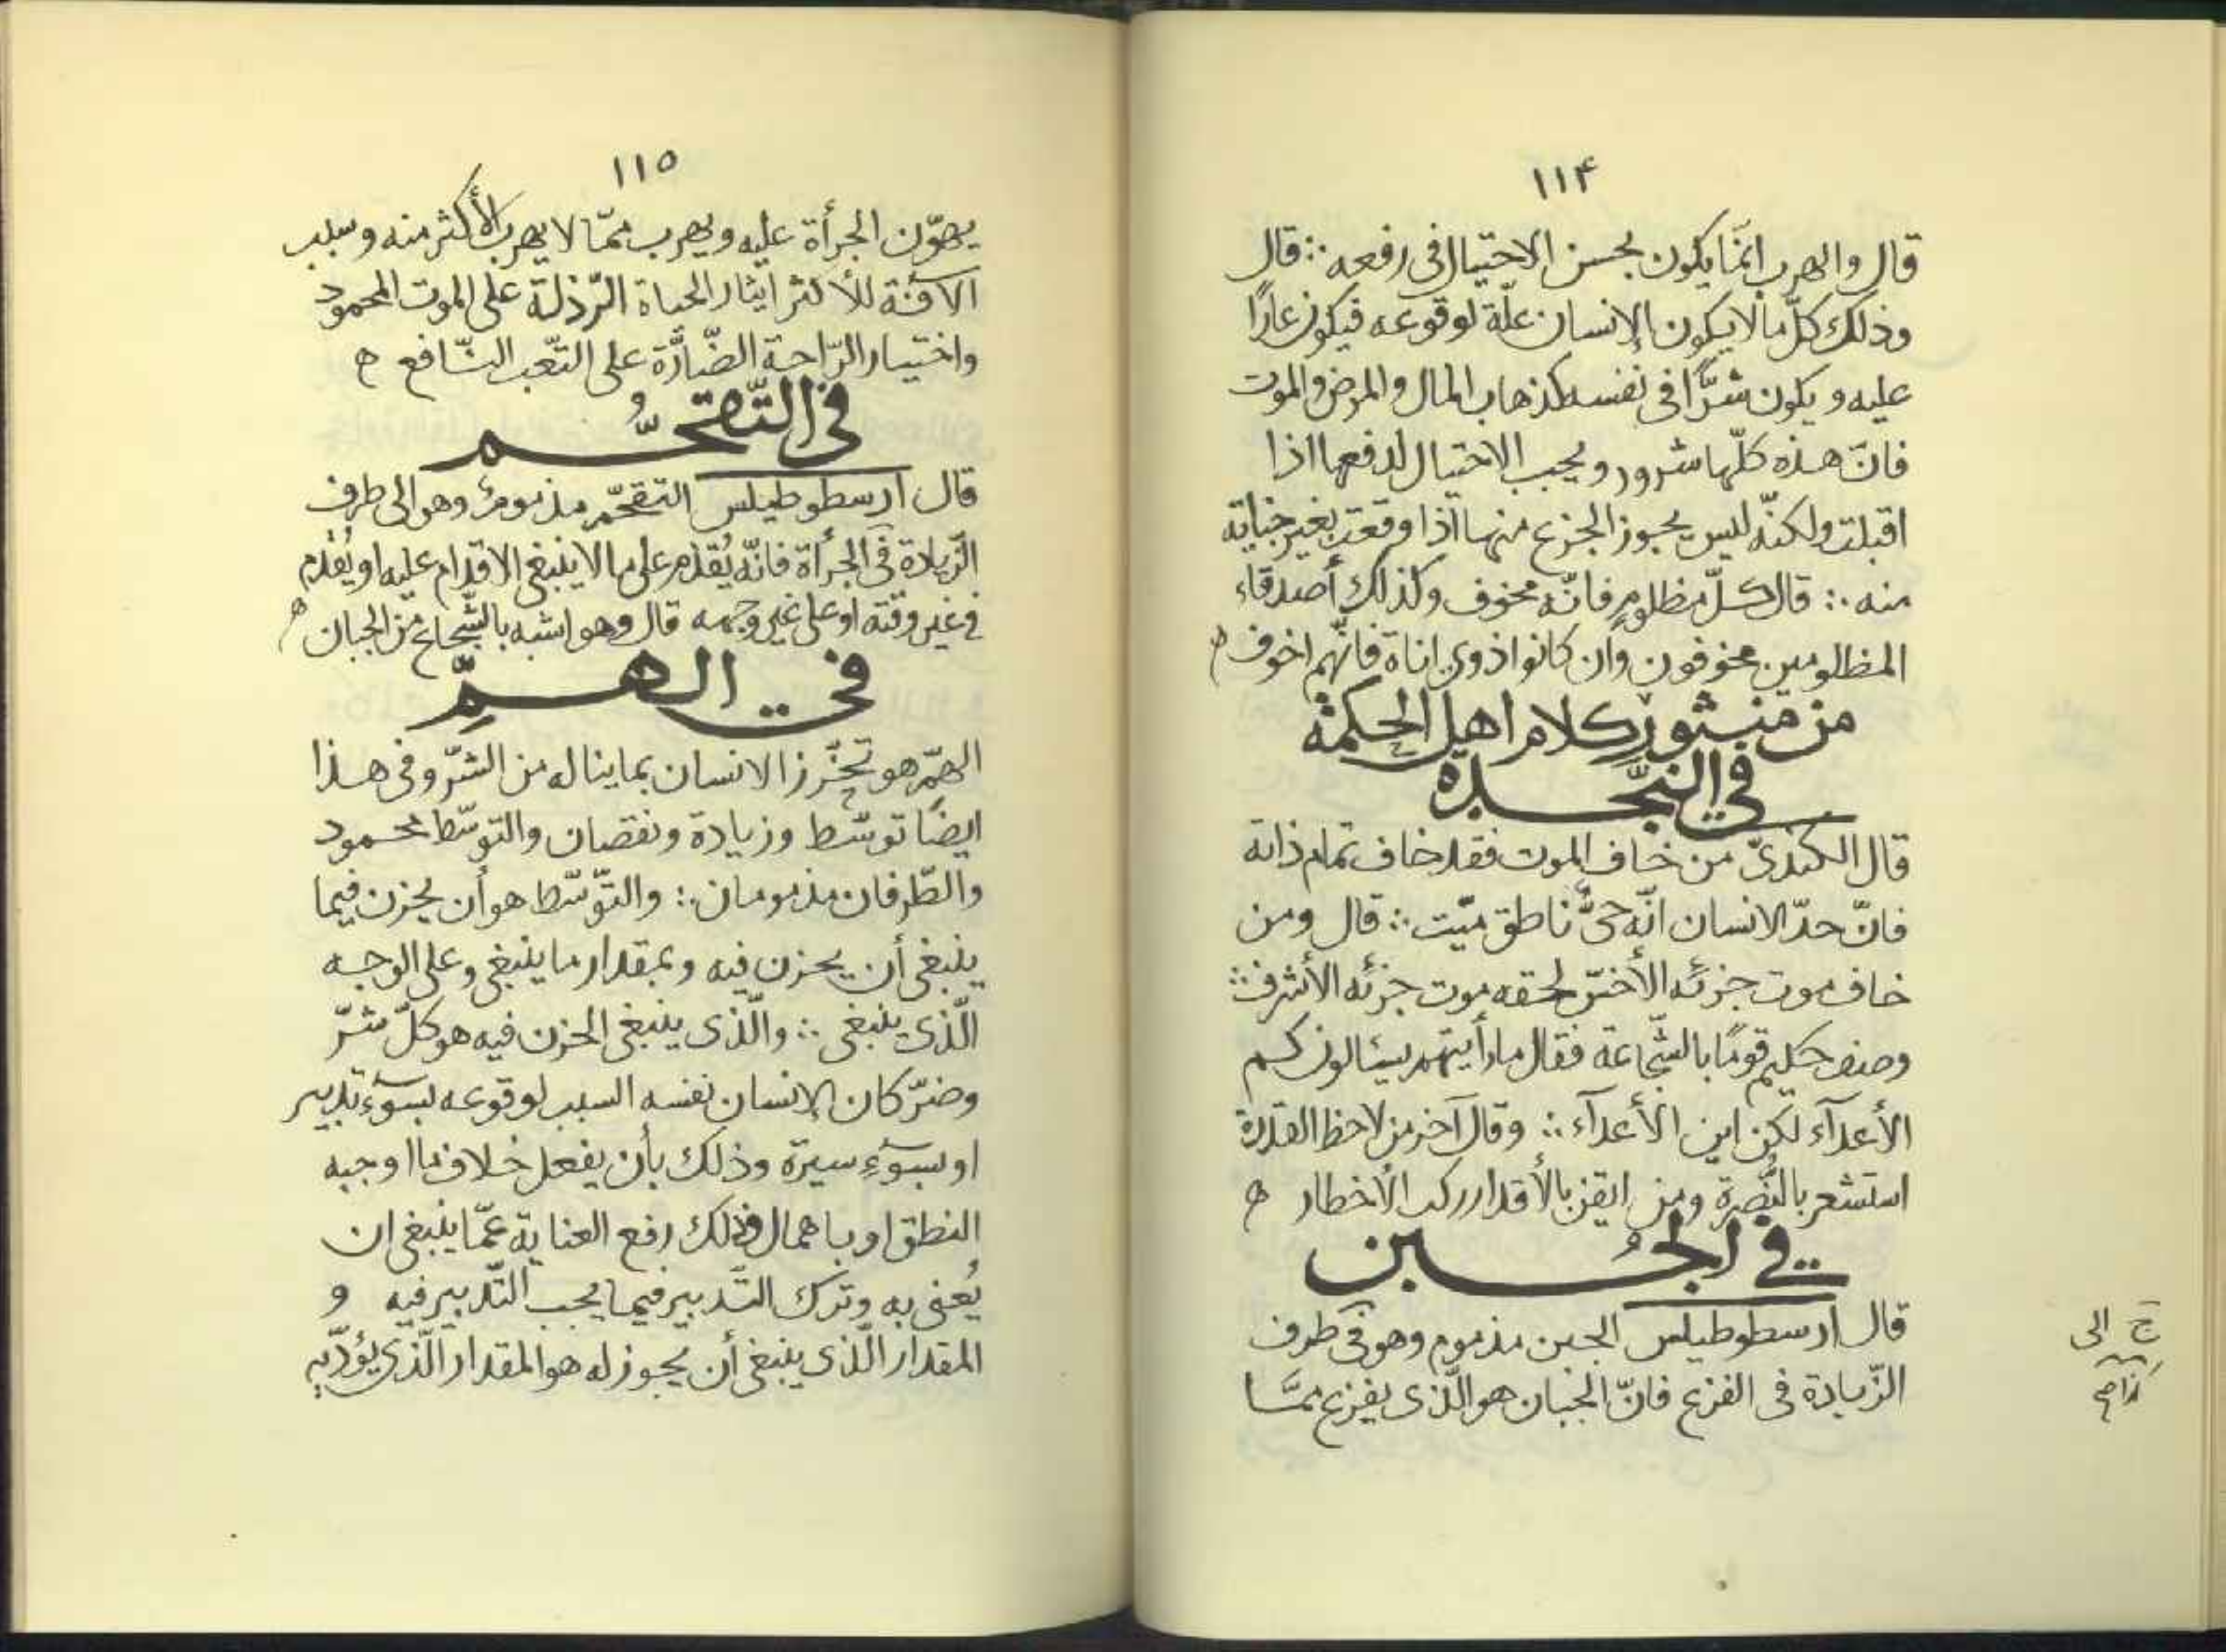 ١١۴
قال والهرب انّما يكون بحسن الاحتيال فى رفعه ∴ قال
وذلك كلّ ما لا يكون الإنسان علّة لوقوعه فيكون عارًا
عليه ويكون شرًّا فى نفسه كذهاب المال والمرض والموت
فانّ هذه كلّها شرور ويجب الاحتيال لدفعها اذا
اقبلت ولكنّه ليس يجوز الجزع منها اذا وقعت بغير جناية
منه ∴ قال كلّ مظلومٍ فانّه مخوف وكذلك أصدقاء
المظلومين مخوفون وان كانوا ذوى اناة فانّهم اخوف ه
من منثور كلام اهل الحكمة
فى النّجدة
قال الكندىّ من خاف الموت فقد خاف تمام ذاته
فانّ حدّ الانسان انّه حىٌّ ناطق ميّت ∴ قال ومن
خاف موت جزئه الأخسّ لحقه موت جزئه الأشرف ∴
وصف حكيم قومًا بالشّجاعة فقال ما رأيتهم يسئالون كم
الأعدآء لكن اين الأعدآء ∴ وقال آخر من لاحظ القدرة
استشعر بالنُّصرة ومن ايقن بالأقدار ركب الأخطار ه
فى الجُبن
قال ارسطوطيلس الجبن مذموم وهو فى طرف
الزّيادة فى الفزع فانّ الجبان هو الّذى يفزع ممّا
ح الى
١١٥
يهوّن الجرأة عليه ويهرب ممّا لا يهرب الأكثر منه وسبب
الآفة للأكثر ايثار الحياة الرّذلة على الموت المحمود
واختيار الرّاحة الضّارَّة على التّعب النّافع ه
فى التّقحُّم
قال ارسطوطيلس التقحّم مذمومٌ وهو الى طرف
الزّيادة فى الجرأة فانّه يُقدم على ما لا ينبغى الاقدام عليه او يُقدم
فى غير وقته او على غير وجهه قال وهو اشبه بالشّجاع من الجبان ه
فى الهمِّ
الهمّ هو تحزّز الانسان بما يناله من الشرّ وفى هذا
ايضًا توسّط وزيادة ونقصان والتوسّط محمود
والطّرفان مذمومان ∴ والتّوسّط هو أن يحزن فيما
ينبغى أن يحزن فيه وبمقدار ما ينبغى وعلى الوجه
الّذى ينبغى ∴ والّذى ينبغى الحزن فيه هو كلّ شرّ
وضرّ كان الإنسان نفسه السبب لوقوعه بسوٓء تدبير
او بسوٓءِ سيرة وذلك بأن يفعل خلاف ما اوجبه
النطق او باهمال وذلك رفع العناية عمّا ينبغى ان
يُعنى به وترك التّدبير فيما يجب التّدبير فيه و
المقدار الّذى ينبغى أن يجوز له هو المقدار الّذى يؤدّيه